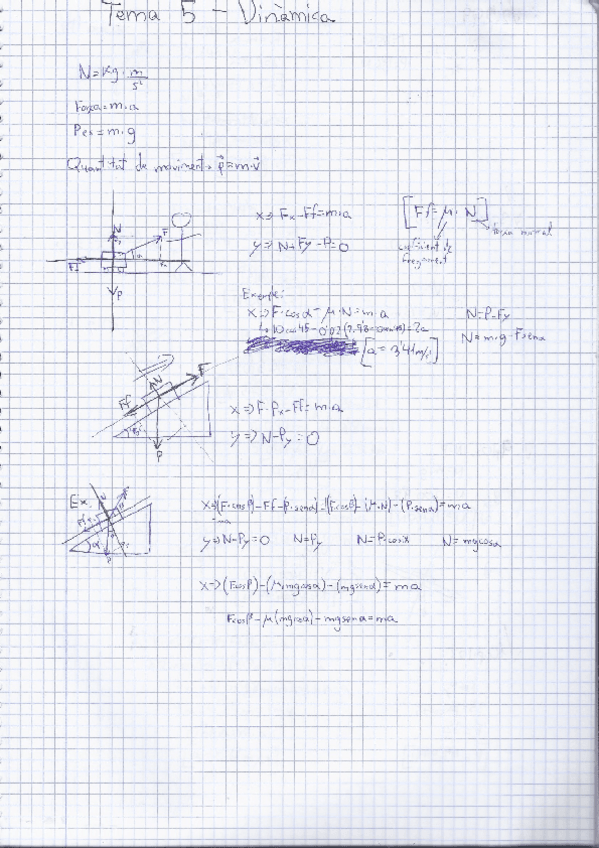 Tema 5 - Dinàmica
N = Kg · m/s²
Força = m·a
Pes = m·g
Quantitat de moviment → p⃗ = m·v⃗
x => Fx - Ff = m·a
[Ff = μ · N]
y => N + Fy - P = 0
força normal
coeficient de fregament
N
F
Ff
P
Exemple:
x => F·cosα - μ·N = m·a
N = P - Fy
N = m·g - F·senα
[a = 3'41 m/s²]
N
F
Ff
P
x => F - Px - Ff = m·a
y => N - Py = 0
Ex:
N
F
Ff
α
P
x => (F·cosβ) - Ff - (P·senα) = (F·cosβ) - (μ·N) - (P·senα) = m·a
y => N - Py = 0 N = Py N = P·cosα N = mgcosα
x -> (Fcosβ) - (μ·mgcosα) - (mgsenα) = ma
Fcosβ - μ(mgcosα) - mgsenα = ma